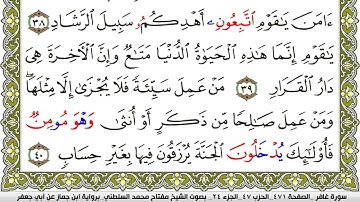 ءَامَنَ يَـٰقَوْمِ ٱتَّبِعُونِۦ أَهْدِكُمُۥ سَبِيلَ ٱلرَّشَادِ ٣٨
يَـٰقَوْمِ إِنَّمَا هَـٰذِهِ ٱلْحَيَوٰةُ ٱلدُّنْيَا مَتَـٰعٌ وَإِنَّ ٱلْـَٔاخِرَةَ هِيَ
دَارُ ٱلْقَرَارِ ٣٩ مَنْ عَمِلَ سَيِّئَةً فَلَا يُجْزَىٰٓ إِلَّا مِثْلَهَا
وَمَنْ عَمِلَ صَـٰلِحًا مِّن ذَكَرٍ أَوْ أُنثَىٰ وَهْوَ مُومِنٌ
فَأُوْلَـٰٓئِكَ يُدْخَلُونَ ٱلْجَنَّةَ يُرْزَقُونَ فِيهَا بِغَيْرِ حِسَابٍ ٤٠
سورة غافر _ الصفحة ٤٧١ _ الحزب ٤٧ _ الجزء ٢٤ _ بصوت الشيخ مفتاح محمد السلطني _ برواية ابن جماز عن أبي جعفر